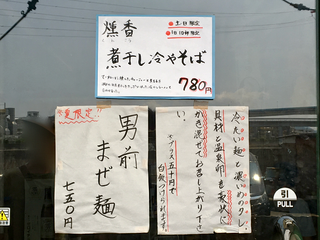 燻香
土日限定
1日10杯限定
煮干し冷やそば
780円
夏限定
男前
まぜ麺
七五〇円
冷たい麺と濃いめのタレ、
具材と温泉卵を豪快に
かき混ぜてお召し上がり下さ
い。
プラス五十円で
白飯つけられます。
引
PULL